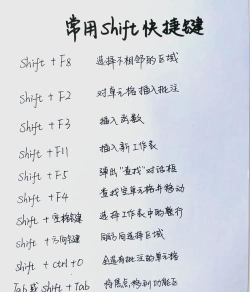 常用Shift快捷键
Shift + F8 选择不相邻的区域
Shift + F2 对单元格插入批注
Shift + F3 插入函数
Shift + F11 插入新工作表
Shift + F5 弹出"查找"对话框
Shift + F4 查找空单元格并移动
Shift + 空格键 选择工作表中的整行
Shift + 方向键 选择区域
Shift + ctrl + O 选有批注的单元格
Tab 或 Shift + Tab 将焦点移到功能区